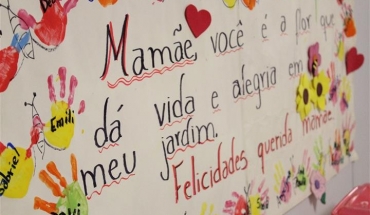 Mamãe, você é a flor que
dá vida e alegria em
meu jardim.
Felicidades querida mamãe.
Emili